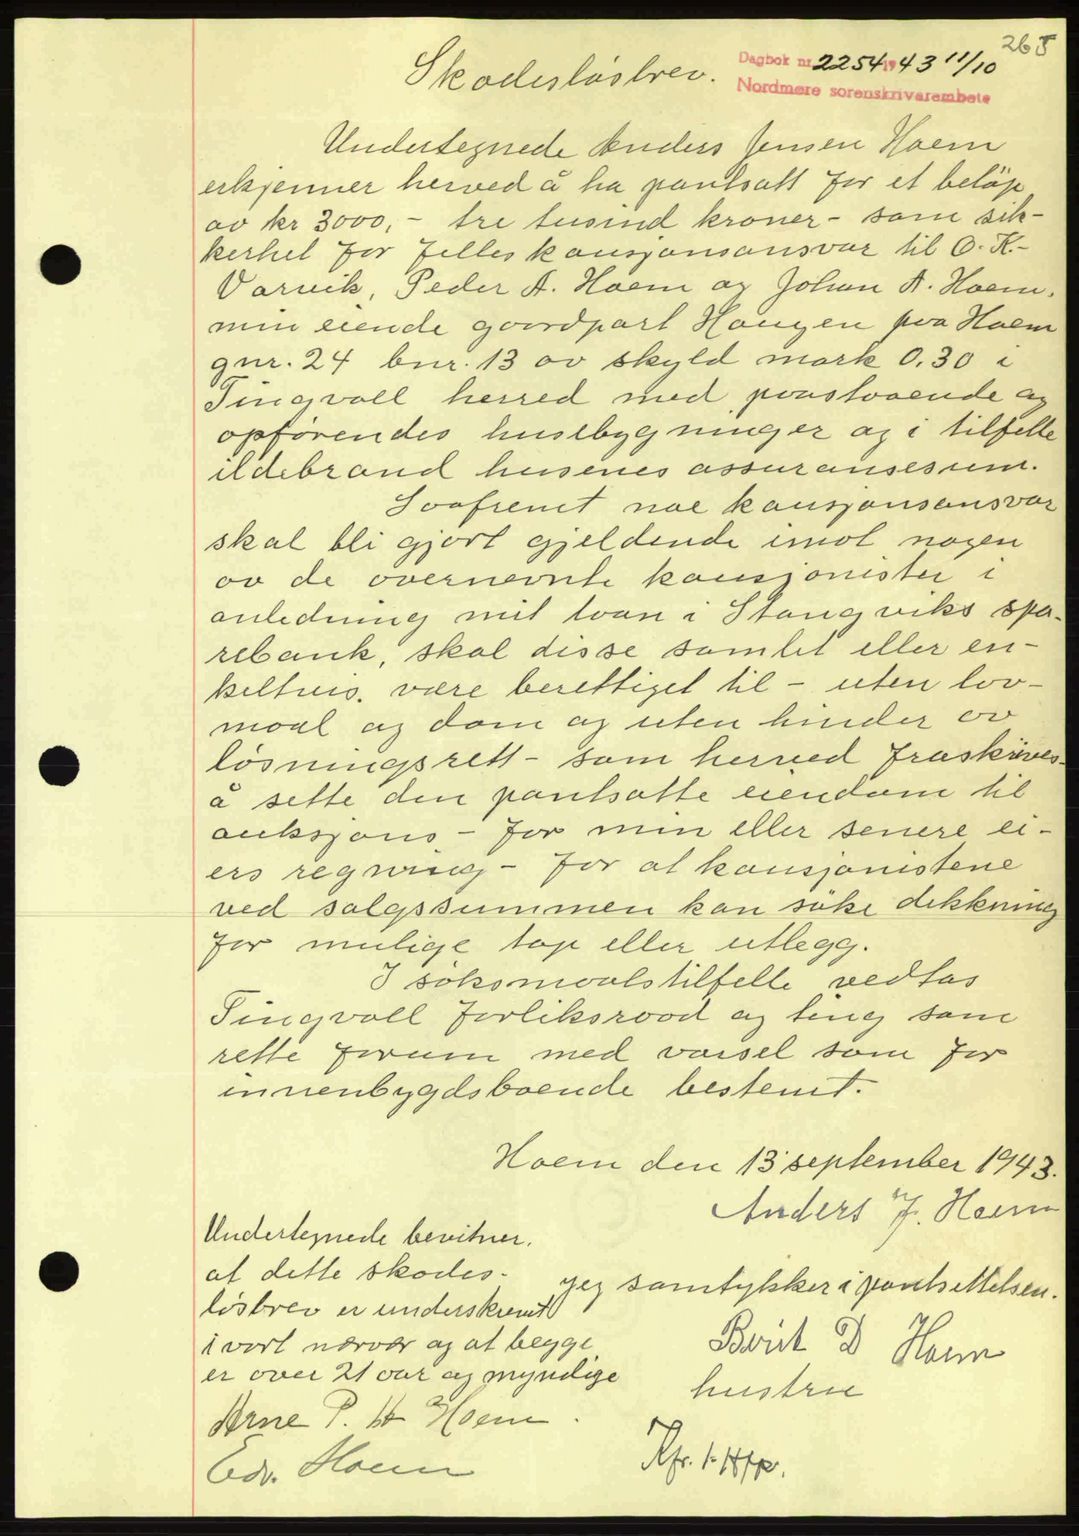 265
Dagbok nr. 2254 1943 11/10
Nordmøre sorenskriverembete
Skadesløsbrev.
Undertegnede Anders Jensen Hoem
erkjenner herved å ha pantsatt for et beløp
av kr 3000,- tre tusind kroner - som sik-
kerhet for felleskausjonsansvar til O. K.-
Varvik, Peder A. Hoem og Johan A. Hoem,
min eiende gaardpart Haugen paa Hoem
gnr. 24 bnr. 13 av skyld mark 0.30 i
Tingvoll herred med paastaaende og
opførendes husebygninger og i tilfelle
ildebrand husenes assuransesum.
Saafremt noe kausjonsansvar
skal bli gjort gjeldende imot nogen
av de overnevnte kausjonister i
anledning mit laan i Stangviks spa-
rebank, skal disse samlet eller en-
keltvis, være berettiget til - uten lov-
maal og dom og uten hinder av
løsningsrett - som herved fraskrives -
å sette den pantsatte eiendom til
auksjons - for min eller senere ei-
ers regning - for at kausjonistene
ved salgssummen kan søke dekkning
for mulige tap eller utlegg.
I søksmaalstilfelle vedtas
Tingvoll forliksraad og ting som
rette forum med varsel som for
innenbygdsboende bestemt.
Hoem den 13 september 1943.
Anders J. Hoem
Undertegnede bevitner,
at dette skades-
løsbrev er underskrevet
i vort nærvær og at begge
er over 21 aar og myndige
Arne P. H Hoem.
Edv. Hoem
jeg samtykker i pantsettelsen.
Berit D Hoem
hustru
Kfr.